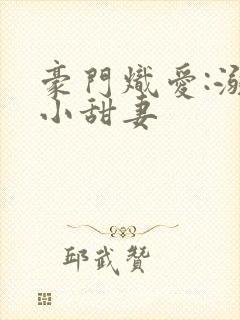 豪門熾愛:溺
小甜妻
邱武贊